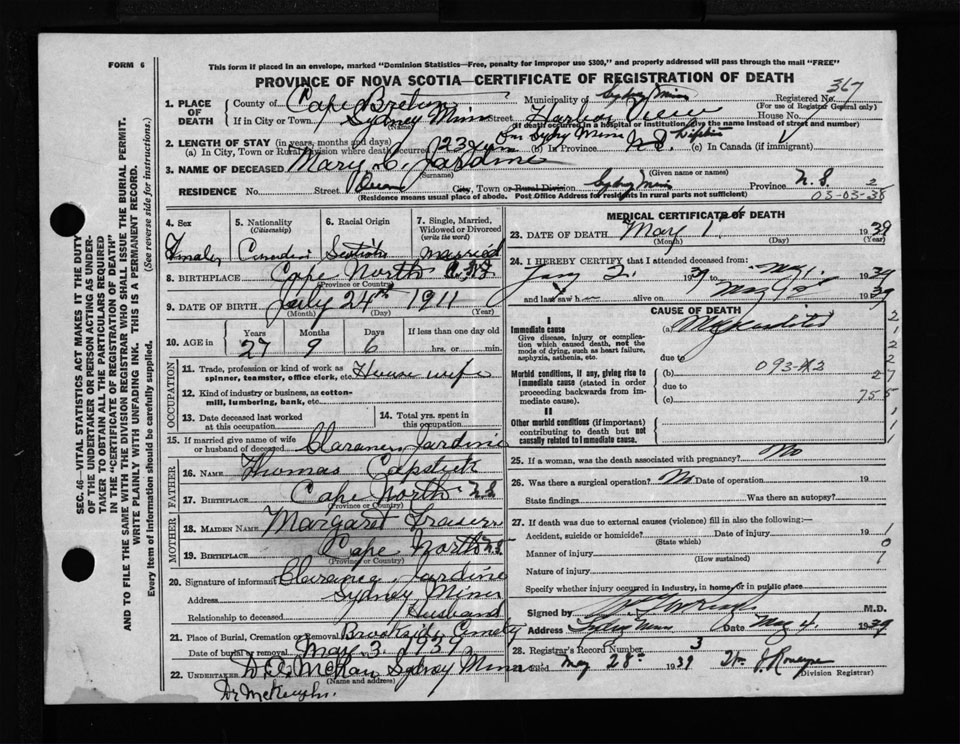 FORM 6
This form if placed in an envelope, marked "Dominion Statistics—Free, penalty for improper use $300," and properly addressed will pass through the mail "FREE"
PROVINCE OF NOVA SCOTIA—CERTIFICATE OF REGISTRATION OF DEATH
367
1. PLACE OF DEATH
County of Cape Breton Municipality of Sydney Mines Registered No.
(For use of Registrar General only)
If in City or Town Sydney Mines Street Harbor View House No.
(Name) (If death occurred in a hospital or institution, give the name instead of street and number)
2. LENGTH OF STAY (in years, months and days)
(a) In City, Town or Rural Division where death occurred 23 (b) In Province N.S. (c) In Canada (if immigrant)
3. NAME OF DECEASED Mary C. Jardine
(Surname) (Given name or names)
RESIDENCE No. Street City, Town or Rural Division Sydney Mines Province N.S 2
(Residence means usual place of abode. Post Office Address for residents in rural parts not sufficient) 03-03-38
4. Sex
Female
5. Nationality
(Citizenship)
Canadian
6. Racial Origin
Scotish
7. Single, Married, Widowed or Divorced
(write the word)
married
8. BIRTHPLACE Cape North
(Province or Country)
9. DATE OF BIRTH July 24th 1911
(Month) (Day) (Year)
10. AGE in
Years Months Days If less than one day old
27 9 6 hrs. or min.
OCCUPATION
11. Trade, profession or kind of work as spinner, teamster, office clerk, etc. House wife
12. Kind of industry or business, as cotton-mill, lumbering, bank, etc.
13. Date deceased last worked at this occupation
14. Total yrs. spent in this occupation
15. If married give name of wife or husband of deceased Clarence Jardine
FATHER
16. NAME Thomas Capstick
17. BIRTHPLACE Cape North N.S.
(Province or Country)
MOTHER
18. MAIDEN NAME Margaret
19. BIRTHPLACE Cape North N.S.
(Province or Country)
20. Signature of informant Clarence Jardine
Address Sydney Mines
Relationship to deceased Husband
21. Place of Burial, Cremation or Removal Brookside Cemetery
Date of burial or removal May 3. 1939
22. UNDERTAKER Sydney Mines
(Name and address)
MEDICAL CERTIFICATE OF DEATH
23. DATE OF DEATH May 1st 1939
(Month) (Day) (Year)
24. I HEREBY CERTIFY that I attended deceased from:
Jany 2. 1939 to May 1. 1939
and last saw h alive on May 1st 1939
CAUSE OF DEATH
I
Immediate cause
Give disease, injury or complication which caused death, not the mode of dying, such as heart failure, asphyxia, asthenia, etc.
(a) Myocarditis
due to
Morbid conditions, if any, giving rise to immediate cause (stated in order proceeding backwards from immediate cause).
(b) 093-
due to
(c)
II
Other morbid conditions (if important) contributing to death but not causally related to immediate cause.
25. If a woman, was the death associated with pregnancy? No
26. Was there a surgical operation? No Date of operation 19
State findings Was there an autopsy?
27. If death was due to external causes (violence) fill in also the following:—
Accident, suicide or homicide? Date of injury 19
(State which)
Manner of injury
(How sustained)
Nature of injury
Specify whether injury occurred in industry, in home, or in public place
Signed by M.D.
Address Sydney Mines Date May 4. 1939
28. Registrar's Record Number 3
Filed May 28th 1939
(Division Registrar)
SEC. 46—VITAL STATISTICS ACT MAKES IT THE DUTY
OF THE UNDERTAKER OR PERSON ACTING AS UNDER-
TAKER TO OBTAIN ALL THE PARTICULARS REQUIRED
IN THE "CERTIFICATE OF REGISTRATION OF DEATH"
AND TO FILE THE SAME WITH THE DIVISION REGISTRAR WHO SHALL ISSUE THE BURIAL PERMIT.
WRITE PLAINLY WITH UNFADING INK. THIS IS A PERMANENT RECORD.
Every item of information should be carefully supplied. (See reverse side for instructions.)